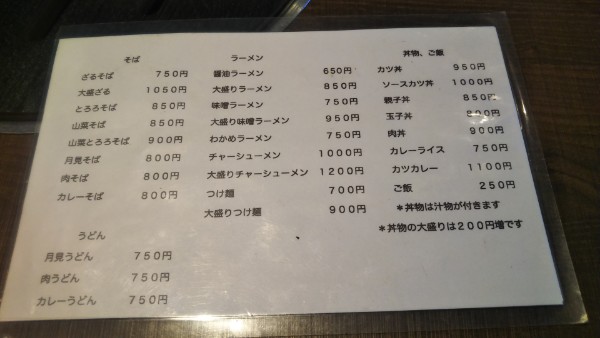 そば
ざるそば 750円
大盛ざる 1050円
とろろそば 850円
山菜そば 850円
山菜とろろそば 900円
月見そば 800円
肉そば 800円
カレーそば 800円
うどん
月見うどん 750円
肉うどん 750円
カレーうどん 750円
ラーメン
醤油ラーメン 650円
大盛りラーメン 850円
味噌ラーメン 750円
大盛り味噌ラーメン 950円
わかめラーメン 750円
チャーシューメン 1000円
大盛りチャーシューメン 1200円
つけ麺 700円
大盛りつけ麺 900円
丼物、ご飯
カツ丼 950円
ソースカツ丼 1000円
親子丼 850円
玉子丼 800円
肉丼 900円
カレーライス 750円
カツカレー 1100円
ご飯 250円
＊丼物は汁物が付きます
＊丼物の大盛りは200円増です